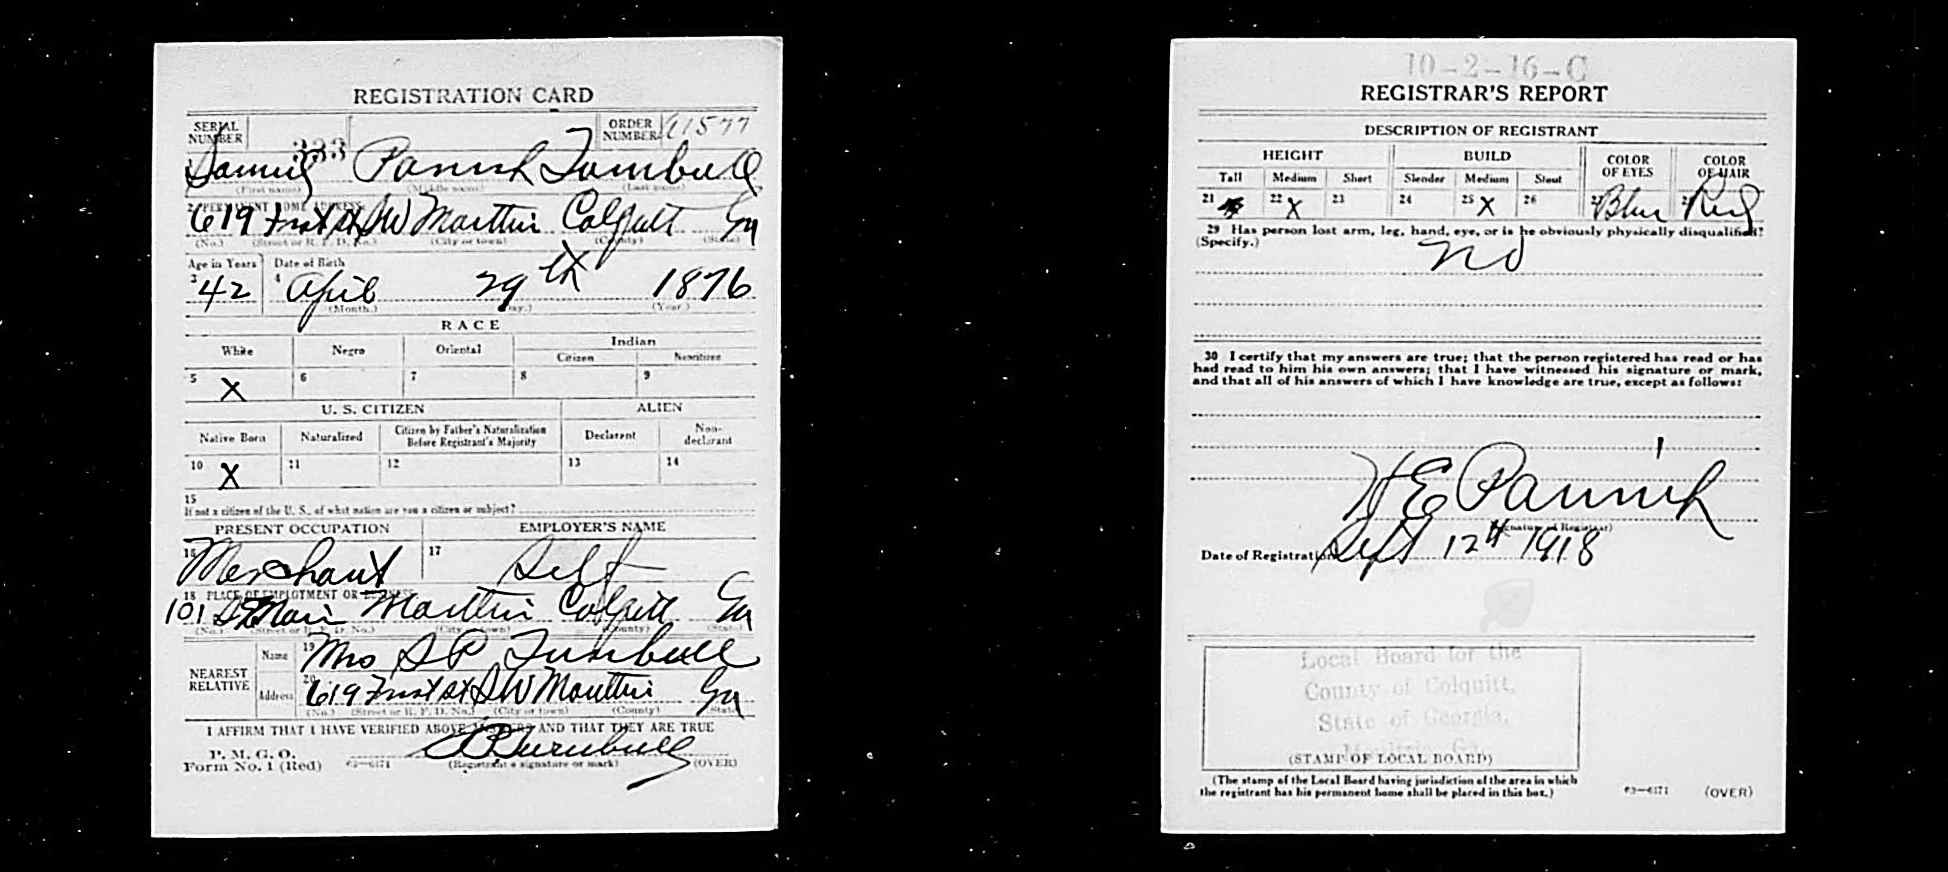 REGISTRATION CARD
SERIAL NUMBER 333 ORDER NUMBER A1577
Samuel Parrish Turnbull
(First name) (Middle name) (Last name)
2 PERMANENT HOME ADDRESS:
619 First St SW Moultrie Colquitt Ga
(No.) (Street or R. F. D. No.) (City or town) (County) (State)
Age in Years Date of Birth
3 42 4 April 29th 1876
(Month.) (Day.) (Year.)
RACE
White Negro Oriental Indian
Citizen Noncitizen
5 X 6 7 8 9
U. S. CITIZEN ALIEN
Native Born Naturalized Citizen by Father's Naturalization Before Registrant's Majority Declarant Non-declarant
10 X 11 12 13 14
15
If not a citizen of the U. S., of what nation are you a citizen or subject?
PRESENT OCCUPATION EMPLOYER'S NAME
16 Merchant 17 Self
18 PLACE OF EMPLOYMENT OR BUSINESS:
101 Main Moultrie Colquitt Ga
(No.) (Street or R. F. D. No.) (City or town) (County) (State)
NEAREST RELATIVE
Name 19 Mrs S P Turnbull
Address 20 619 First St SW Moultrie Ga
(No.) (Street or R. F. D. No.) (City or town) (County) (State)
I AFFIRM THAT I HAVE VERIFIED ABOVE ANSWERS AND THAT THEY ARE TRUE
P. M. G. O.
Form No. 1 (Red) 03—6171 S P Turnbull
(Registrant's signature or mark) (OVER)
10-2-16-C
REGISTRAR'S REPORT
DESCRIPTION OF REGISTRANT
HEIGHT BUILD COLOR OF EYES COLOR OF HAIR
Tall Medium Short Slender Medium Stout
21 22 X 23 24 25 X 26 27 Blue 28 Red
29 Has person lost arm, leg, hand, eye, or is he obviously physically disqualified?
(Specify.) no
30 I certify that my answers are true; that the person registered has read or has
had read to him his own answers; that I have witnessed his signature or mark,
and that all of his answers of which I have knowledge are true, except as follows:
H E Parrish
(Signature of Registrar)
Date of Registration Sept 12th 1918
Local Board for the
County of Colquitt,
State of Georgia,
Moultrie, Ga.
(STAMP OF LOCAL BOARD)
(The stamp of the Local Board having jurisdiction of the area in which
the registrant has his permanent home shall be placed in this box.)
03—6171 (OVER)